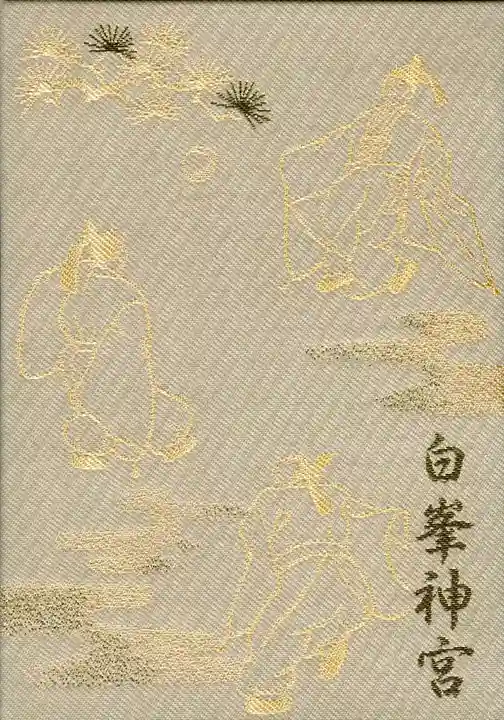 白峯神宮